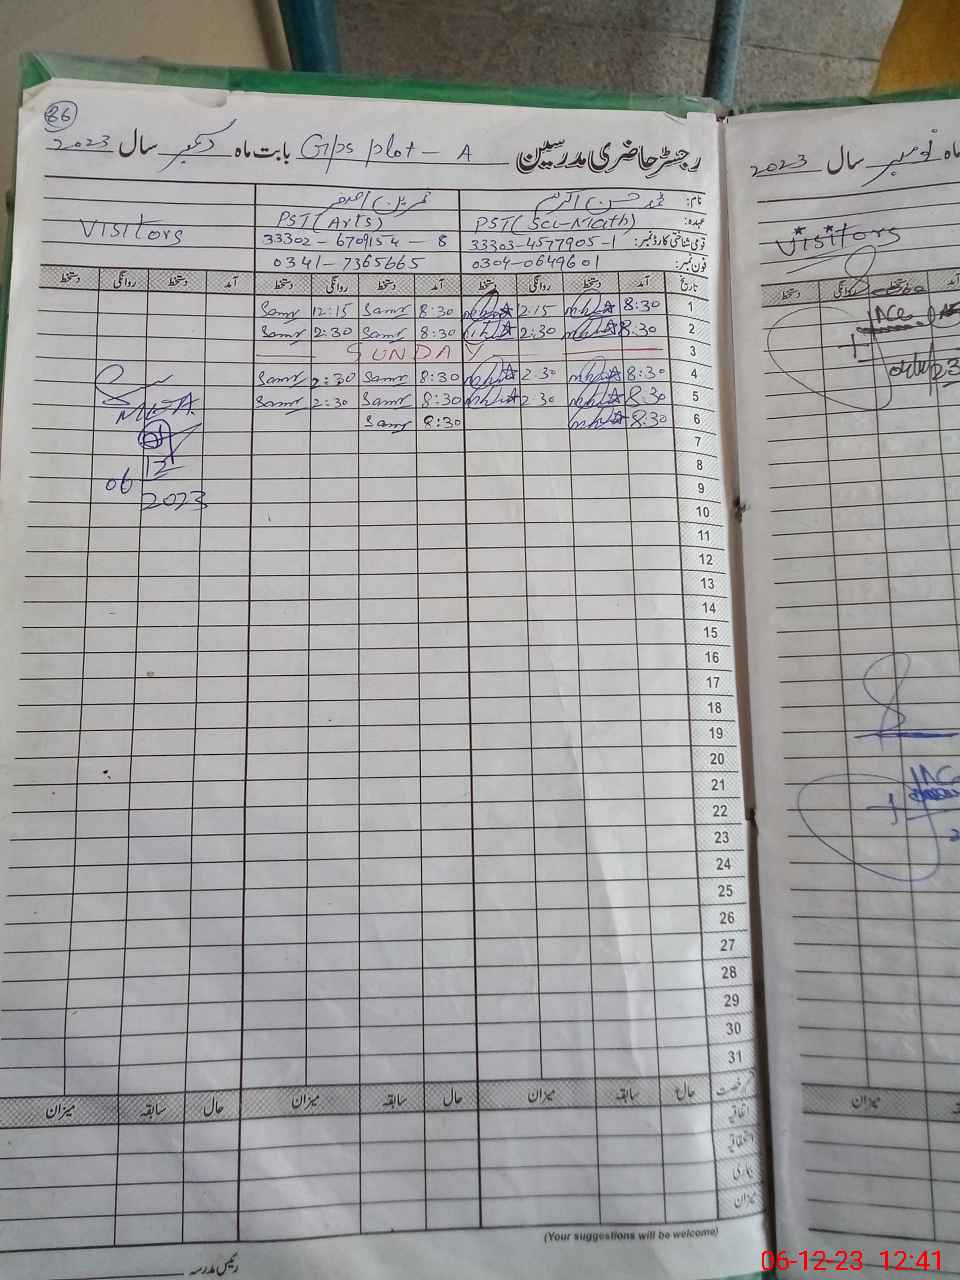 86
رجسٹر حاضری مدرسین Gps plot - A بابت ماہ دسمبر سال 2023
نام:
عہدہ: PST (Sci-Math) PST (Arts) Visitors
قومی شناختی کارڈ نمبر: 33303-4577905-1 33302-6709154-8
فون نمبر: 0304-0649601 0341-7365665
تاریخ آمد دستخط روانگی دستخط آمد دستخط روانگی دستخط آمد دستخط روانگی دستخط
1 8:30 2:15 8:30 Samr 12:15 Samr
2 8:30 2:30 8:30 Samr 2:30 Samr
3 SUNDAY
4 8:30 2:30 8:30 Samr 2:30 Samr
5 8:30 2:30 8:30 Samr 2:30 Samr
6 8:30 8:30 Samr
7
8
9
10
11
12
13
14
15
16
17
18
19
20
21
22
23
24
25
26
27
28
29
30
31
06
12
2023
رخصت حال سابقہ میزان حال سابقہ میزان حال سابقہ میزان
اتفاقیہ
استحقاقیہ
بیماری
میزان
(Your suggestions will be welcome)
رئیس مدرسہ
ماہ نومبر سال 2023
Visitors
آمد دستخط روانگی دستخط
میزان
06-12-23 12:41